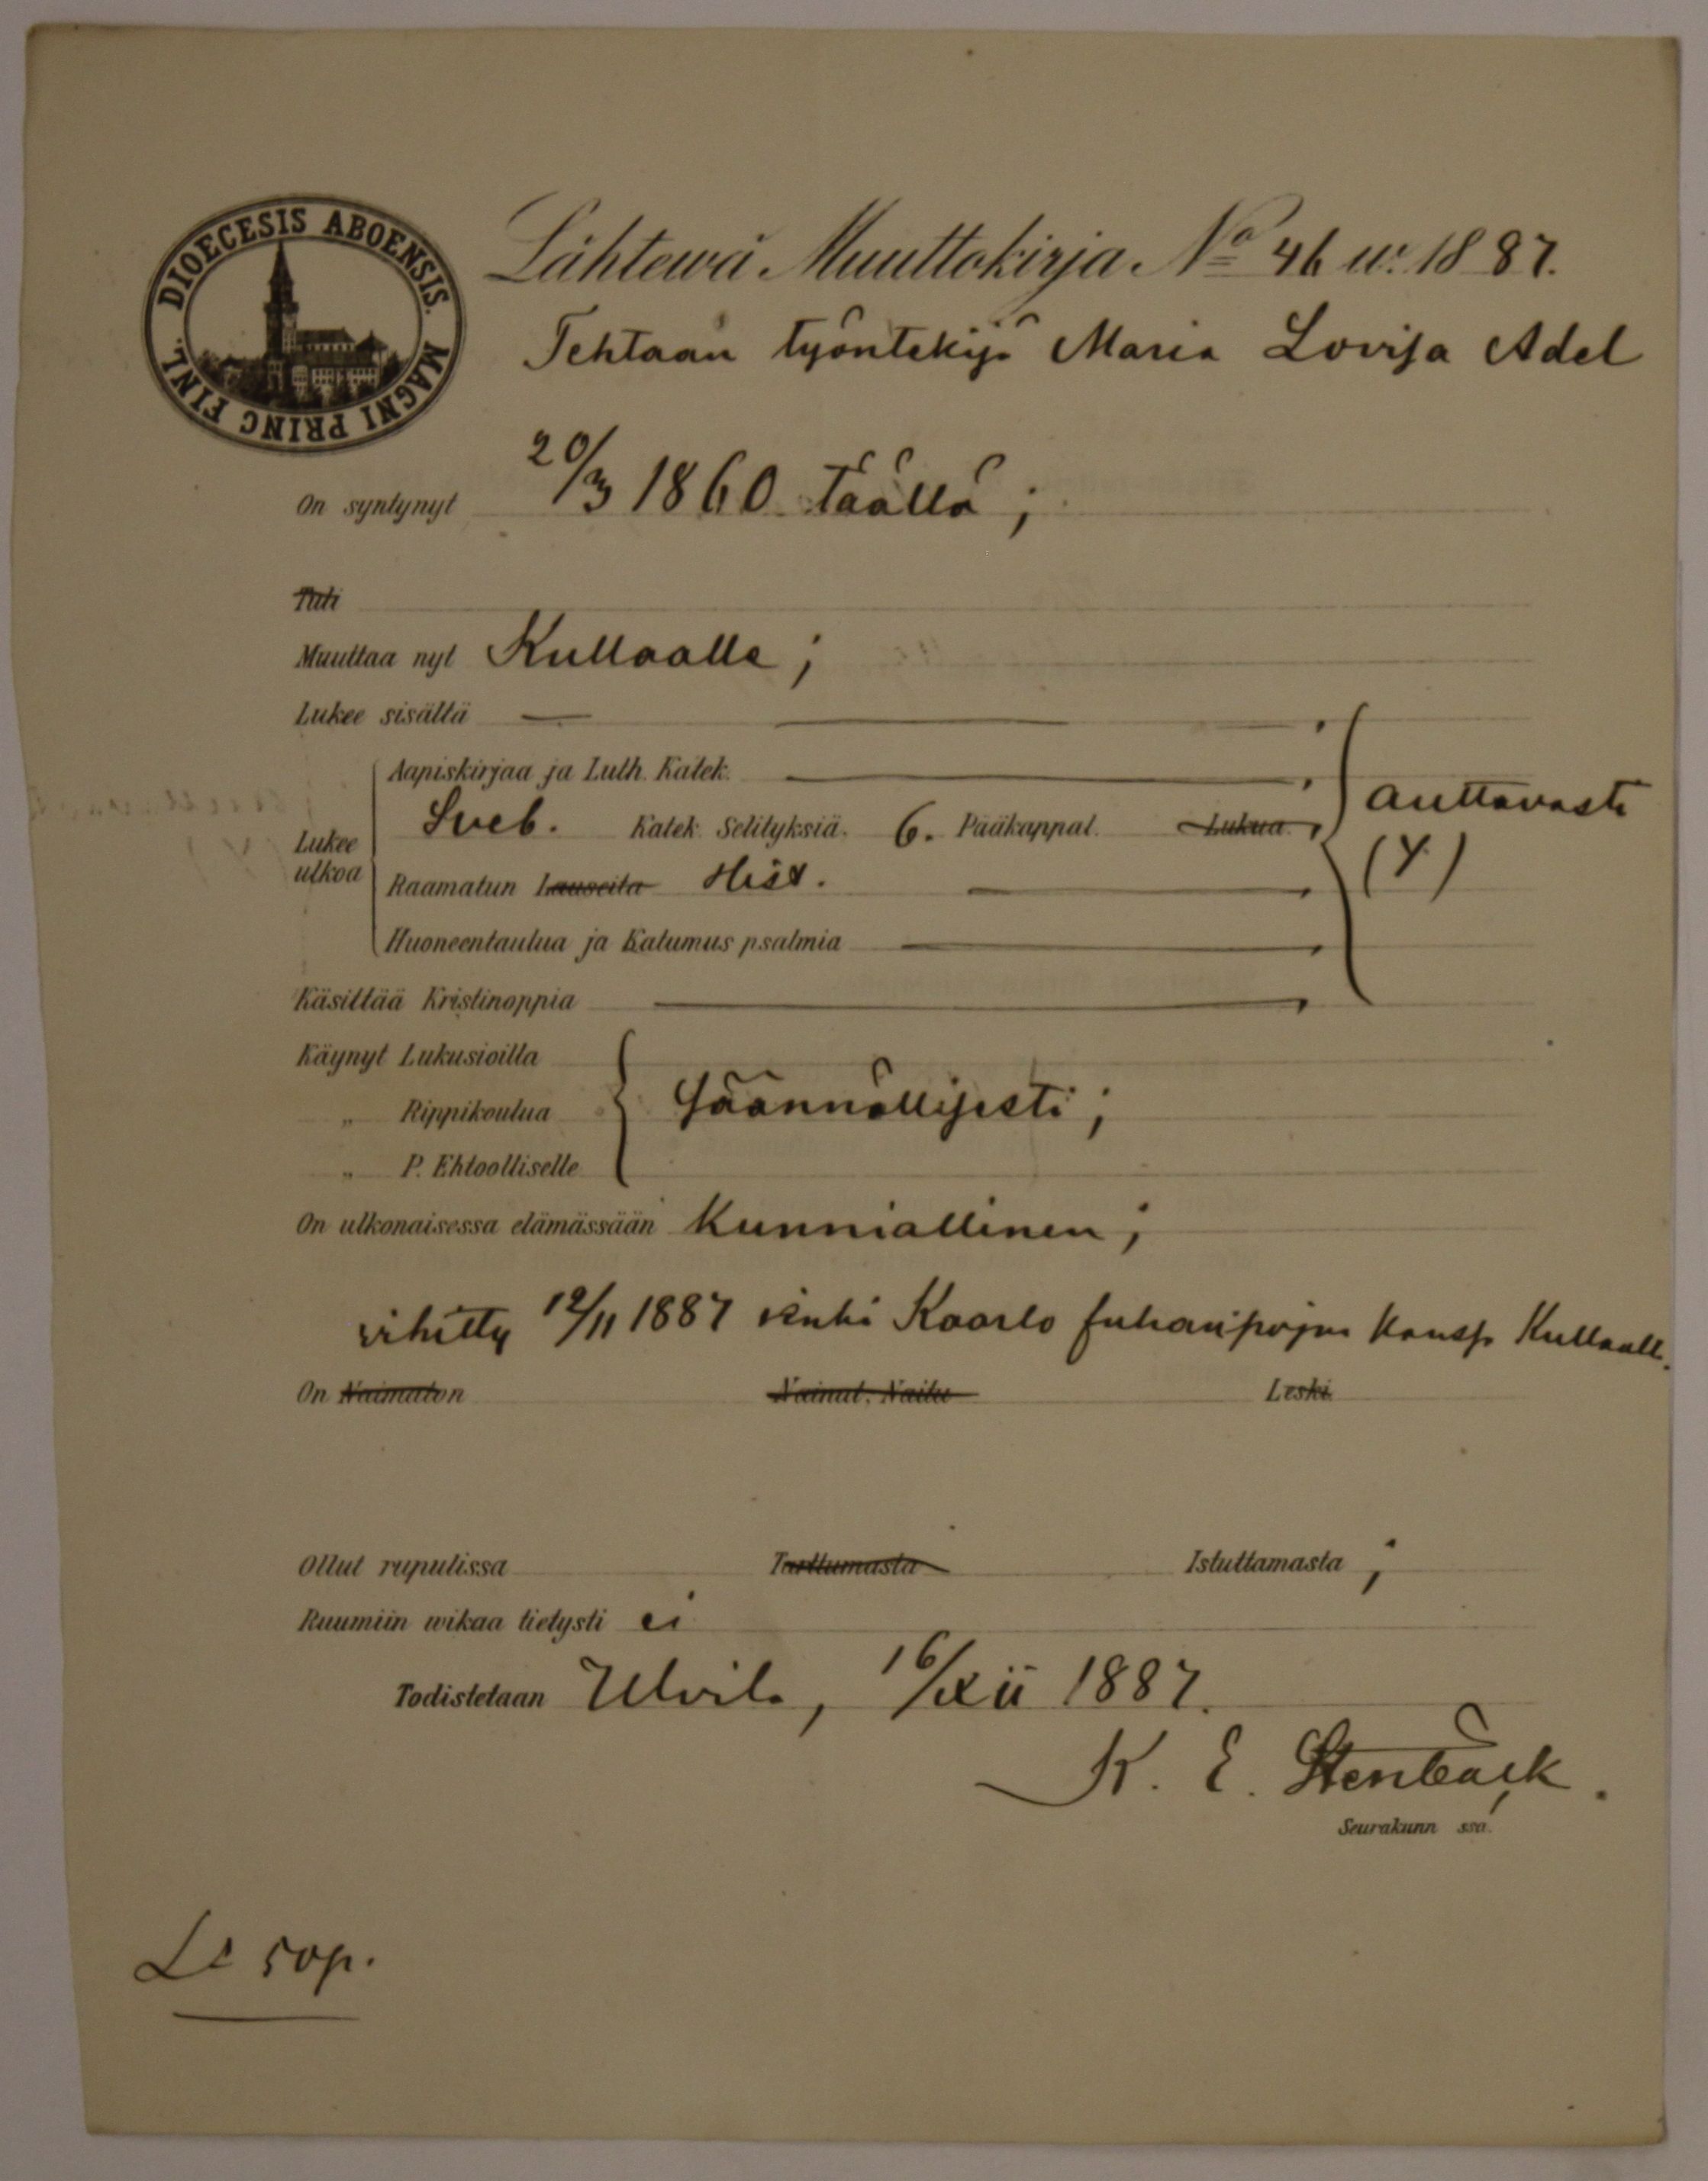 DIOECESIS ABOENSIS. MAGNI PRINC FINL.
Lähtewä Muuttokirja No 46 w. 1887.
Tehtaan työntekijä Maria Lovisa Adel
On syntynyt 20/3 1860 täällä ;
Tuli
Muuttaa nyt Kullaalle ;
Lukee sisältä
Aapiskirjaa ja Luth. Katek.
auttavasti
Lukee ulkoa
Sveb. Katek. Selityksiä. 6. Pääkappal. Lukua.
Raamatun Lauseita Hist.
(Y.)
Huoneentaulua ja Katumus psalmia
Käsittää Kristinoppia
Käynyt Lukusioilla
„ Rippikoulua säännöllisesti ;
„ P. Ehtoolliselle
On ulkonaisessa elämässään Kunniallinen ;
vihitty 12/11 1887 renki Kaarlo Juhanipojan kanssa Kullaalle.
On Naimaton Nainut, Naitu Leski.
Ollut rupulissa Tarttumasta Istuttamasta ;
Ruumiin wikaa tietysti ei
Todistetaan Ulvila, 16/xii 1887.
K. E. Stenbäck.
Seurakunn ssa.
50p.